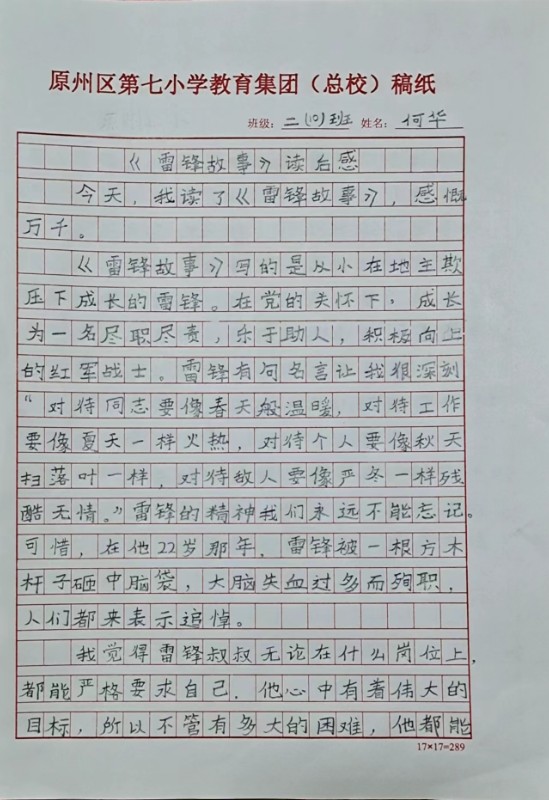 原州区第七小学教育集团（总校）稿纸
班级：二(10)班 姓名：何华
《雷锋故事》读后感
今天，我读了《雷锋故事》，感慨
万千。
《雷锋故事》写的是从小在地主欺
压下成长的雷锋。在党的关怀下，成长
为一名尽职尽责，乐于助人，积极向上
的红军战士。雷锋有句名言让我狠深刻
“对待同志要像春天般温暖，对待工作
要像夏天一样火热，对待个人要像秋天
扫落叶一样，对待敌人要像严冬一样残
酷无情。”雷锋的精神我们永远不能忘记。
可惜，在他22岁那年，雷锋被一根方木
杆子砸中脑袋，大脑失血过多而殉职，
人们都来表示追悼。
我觉得雷锋叔叔无论在什么岗位上，
都能严格要求自己．他心中有着伟大的
目标，所以不管有多大的困难，他都能
17×17=289